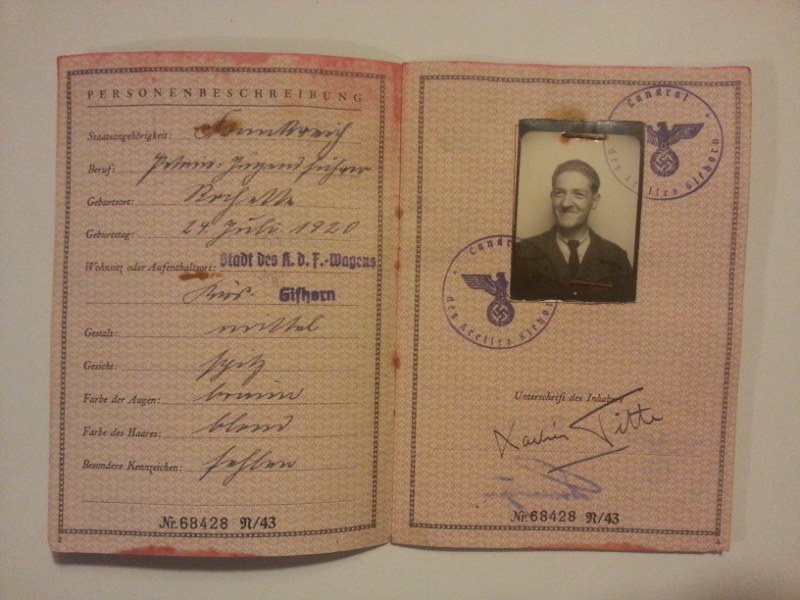 PERSONENBESCHREIBUNG
Staatsangehörigkeit: Frankreich
Beruf: Jugendführer
Geburtsort: Rochette
Geburtstag: 24. Juli 1920
Wohnsitz oder Aufenthaltsort: Stadt des K. d. F.-Wagens
Gifhorn
Gestalt: mittel
Gesicht: spitz
Farbe der Augen: braun
Farbe des Haares: blond
Besondere Kennzeichen: fehlen
Nr. 68428 N/43
2
Landrat
des Kreises Gifhorn
Landrat
des Kreises Gifhorn
Unterschrift des Inhabers
Nr. 68428 N/43
3